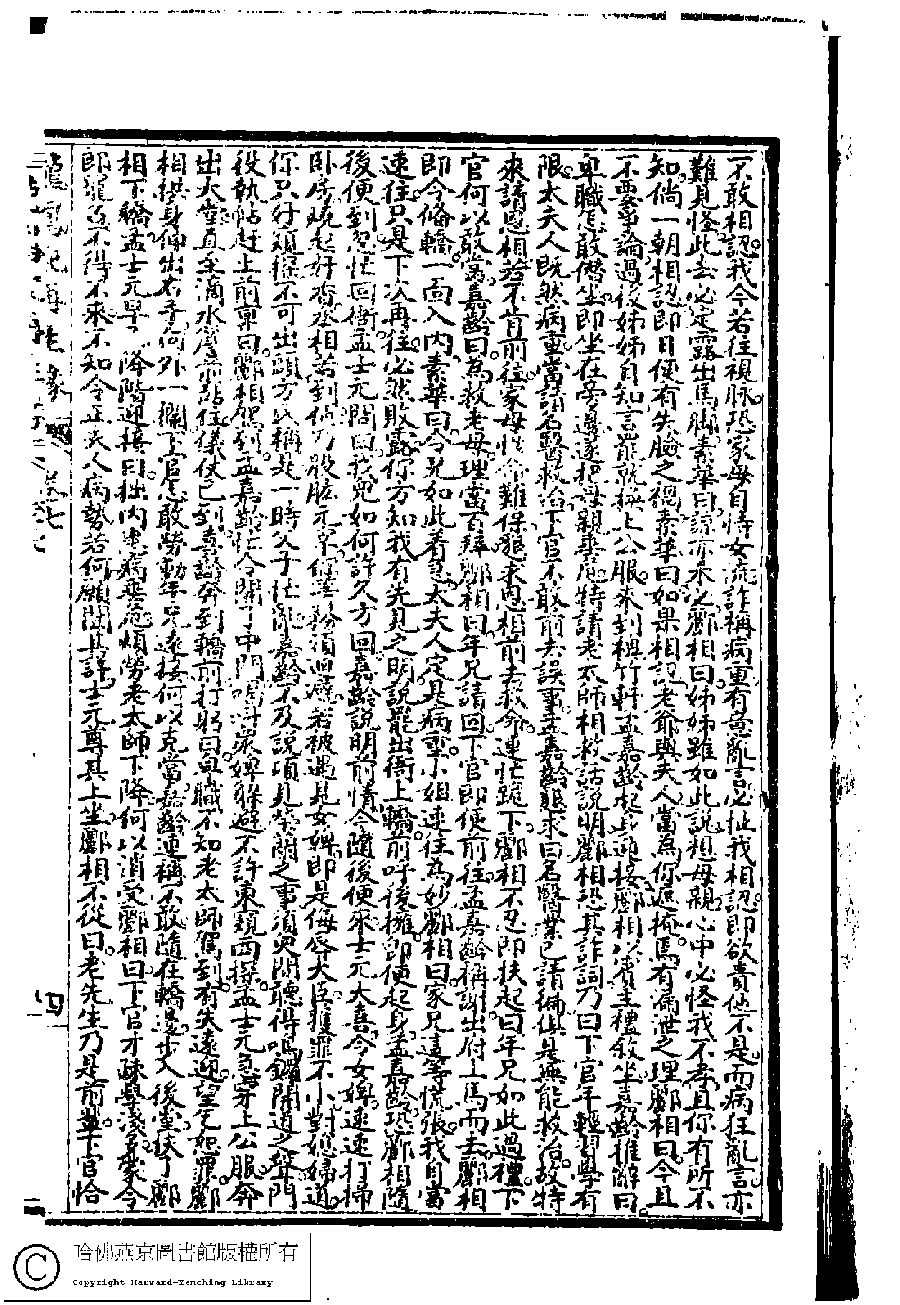 不敢相認我今若往視脉恐家母自恃女流詐稱病重有意亂言必扯我相認即欲責他不是而病狂亂言亦
難見怪此去必定露出馬脚素華曰諒亦未必酈相曰姊姊雖如此說想母親心中必怪我不孝且你有所不
知倘一朝相認即日便有失臉之禍素華曰如果相認老爺與夫人當為你遮掩焉有漏泄之理酈相曰今且
不要爭論過後姊姊自知言罷就換上公服來到梱竹軒孟嘉齡起身迎接酈相以賓主禮敘坐嘉齡推辭曰
卑職怎敢僭坐即坐在旁邊遂把母親垂危特請老太師相救話說明酈相恐其詐詞乃曰下官年輕習學有
限太夫人既然病重當請名醫救治下官不敢前去誤事孟嘉齡懇求曰名醫業已請徧俱是無能救治故特
來請恩相若不肯前往家母性命難保懇求恩相前去救命連忙跪下酈相不忍即扶起曰年兄如此過禮下
官何以敢當嘉齡曰為救老母理當百拜酈相曰年兄請回下官即便前往孟嘉齡稱謝出府上馬而去酈相
即令備轎一面入內素華曰令兄如此着急太夫人定是病重小姐速往為妙酈相曰家兄這等慌張我自當
速往只是下次再往必然敗露你方知我有先見之明說罷出衙上轎前呼後擁即便起身孟嘉齡恐酈相隨
後便到忽忙回衙孟士元問曰我兒如何許久方回嘉齡說明前情今隨後便來士元大喜令女婢速速打掃
卧房燒起好香丞相若到
你只好
役執帖赶上前稟曰酈相駕到孟嘉齡忙令開了中門喝叫眾婢躲避不許東觀西探孟士元急穿上公服奔
出大堂直至滴水簷前站住儀仗已到嘉齡奔到轎前打躬曰卑職不知老太師駕到有失遠迎望乞恕罪酈
相拱身伸出右手向外一攔下官怎敢勞動年兄遠接何以克當嘉齡連稱不敢隨在轎邊步入後堂扶了酈
相下轎孟士元早早降階迎接曰拙內患病垂危煩勞老太師下降何以消受酈相曰下官才疎學淺名蒙令
郎寵召不得不來不知令正夫人病勢若何願聞其詳士元尊其上坐酈相不從曰老先生乃是前輩下官恰
卷七
四
哈佛燕京圖書館版權所有
Copyright Harvard-Yenching Library